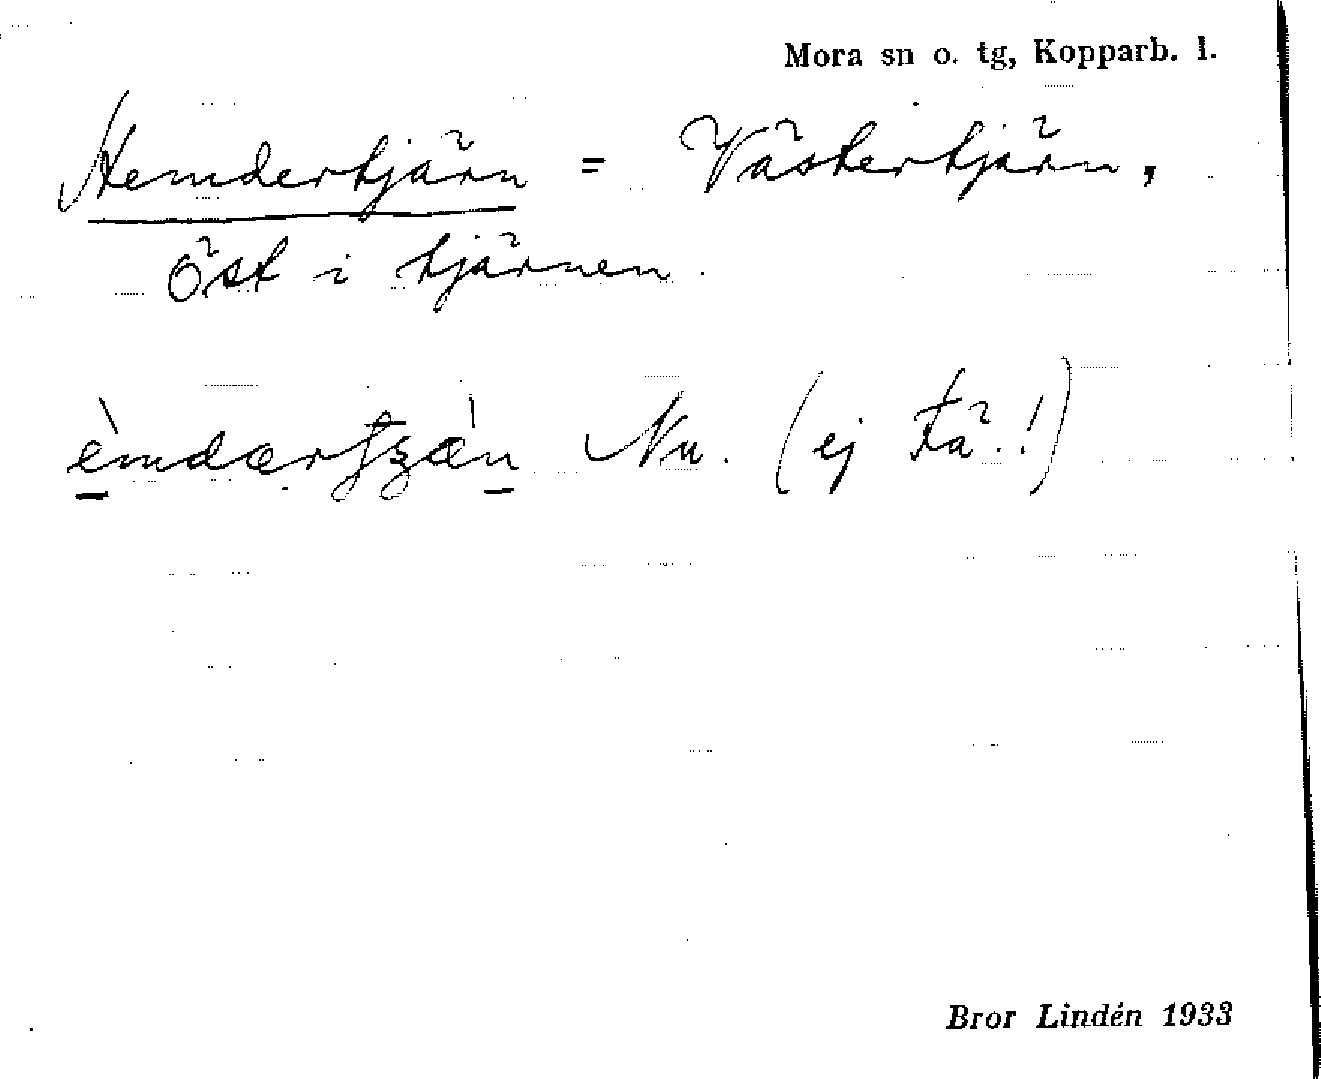 Mora sn o. tg, Kopparb. l.
Hemdertjärn = Västertjärn,
Öst i tjärnen.
Nu. (ej Fä.!)
Bror Lindén 1933